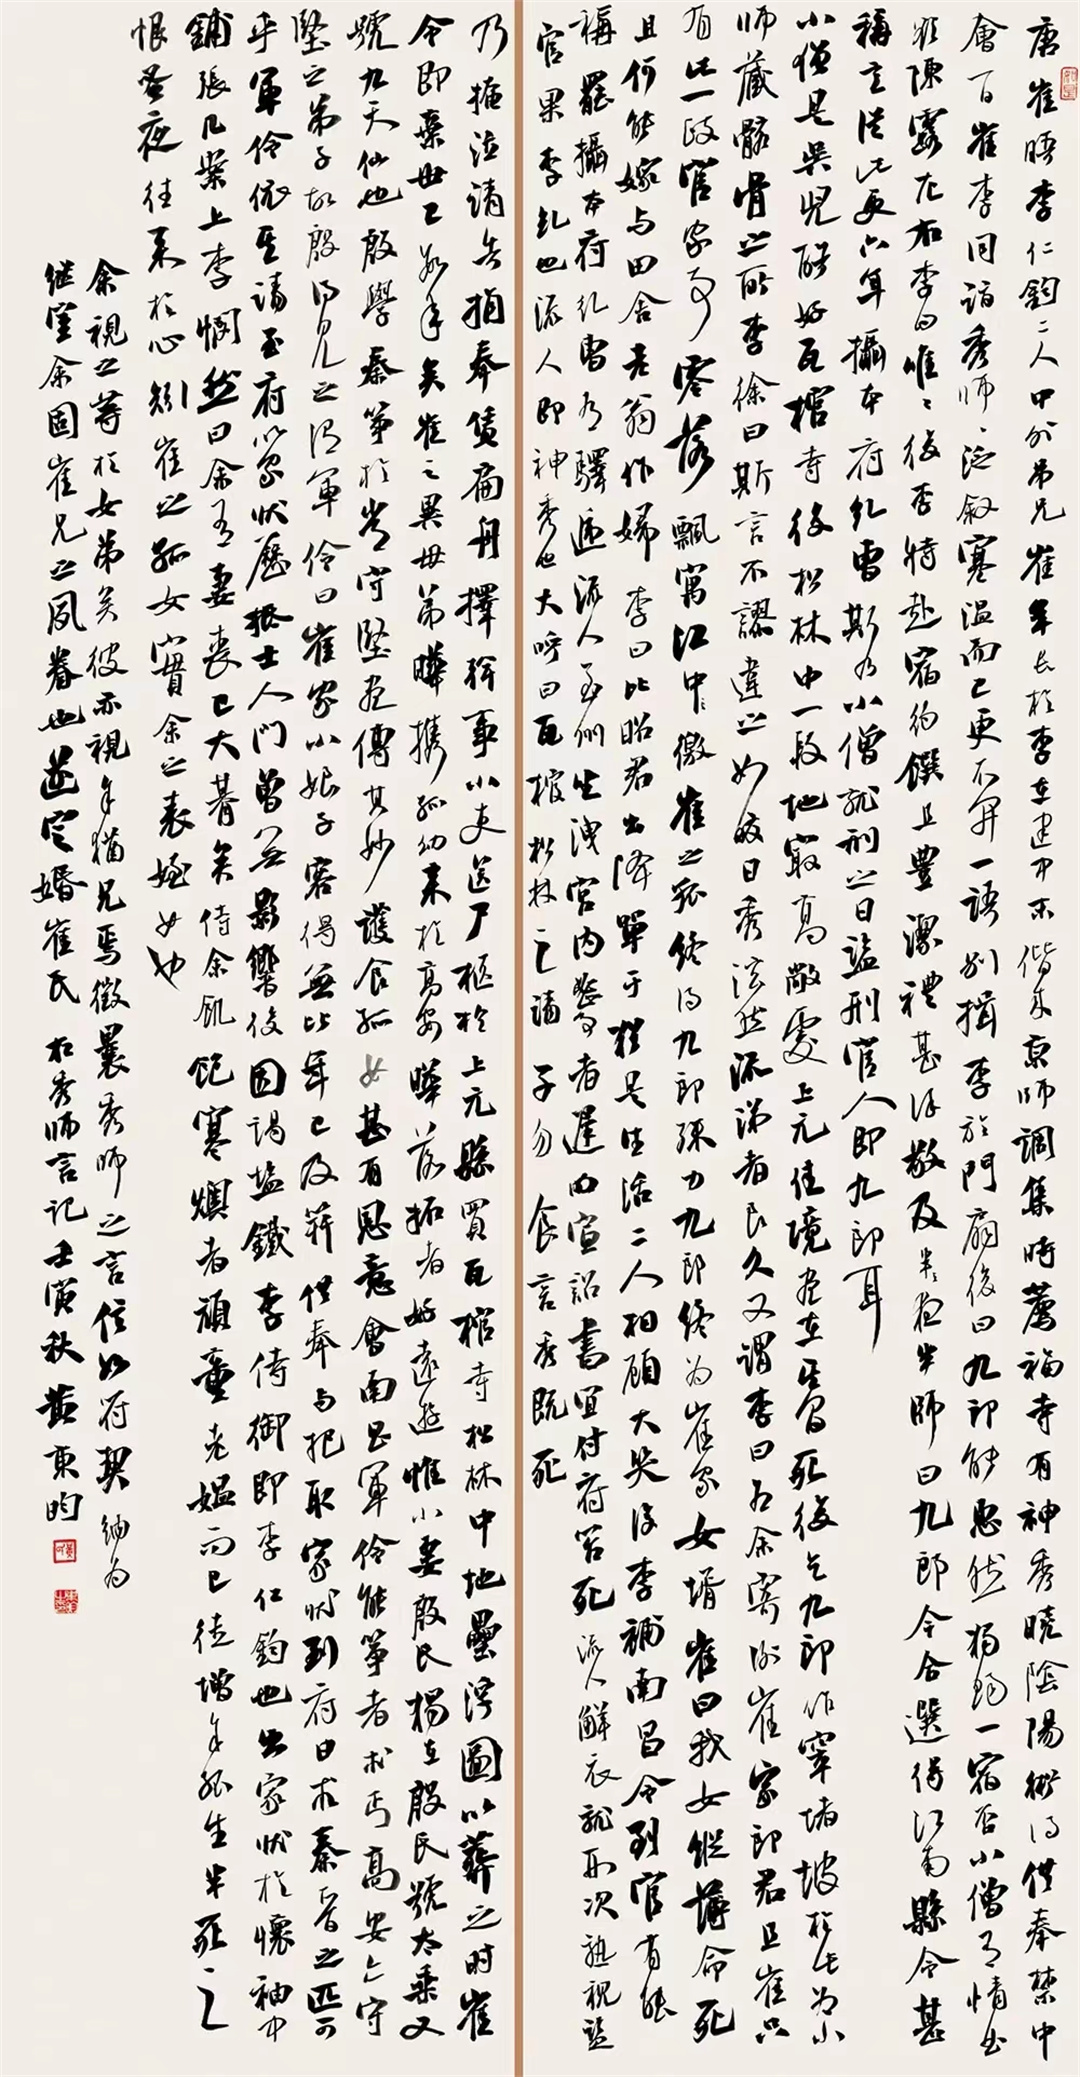 唐崔晤李仁鈞二人中外弟兄崔年長於李在建中末偕來京師調集時薦福寺有神秀曉陰陽術得供奉禁中
會百崔李同詣秀師〻泛敘寒温而已更不開一語別揖李於門扇後曰九郎能惠然獨賜一宿否小僧有情曲
欲陳露左右李曰唯〻後李特赴宿約饌且豐潔禮甚謹敬及半夜半師曰九郎今合選得江南縣令甚
稱意從此更六年攝本府糺曹斯乃小僧就刑之日監刑官人即九郎耳
小僧是吳兒酷好瓦棺寺後松林中一段地最高敞處上元佳境盡在其間死後乞九郎作窣堵坡於此為小
師藏骸骨之所李徐曰斯言不謬違之如皎日秀泫然流涕者良久又謂李曰為余寄謝崔家郎君且崔只
有此一政官家事零落飄寓江中〻徽崔之孤終得九郎殊力九郎終為崔家女壻崔曰我女縱薄命死
且何能嫁與田舍老翁作婦李曰比昭君出降單于猶是生活二人相顧大笑後李補南昌令到官有能
稱罷攝本府糺曹有驛遞流人至州坐洩宮内密事者遲明宣詔書宜付府笞死流人解衣就刑次熟視監
官果李糺也流人即神秀也大呼曰瓦棺松林之請子勿食言秀既死
乃掩泣請告捐奉賃扁舟擇幹事小吏送尸柩於上元縣買瓦棺寺松林中地壘浮圖以葬之時崔
令即棄世已數年矣崔之異母弟曄攜孤幼來於高安曄落拓者好遠遊惟小妻殷氏獨在殷氏號太乘又
號九天仙也殷學秦箏於常守堅盡傳其妙護食孤女甚有恩意會南昌軍伶能箏者求丐高安亦守
堅之弟子故殷得見之謂軍伶曰崔家小娘子容德無比年已及筓供奉與把取家狀到府日求秦晉之匹可
乎軍伶依其請至府以家狀歷抵士人門曾無影響後因謁鹽鐵李侍御即李仁鈞也出家狀於懷袖中
鋪張几案上李憫然曰余有妻喪已大朞矣侍余飢飽寒燠者頑童老媼而已徒增余孤生半死之
恨蚤夜往來於心矧崔之孤女實余之表姪女也
余視之等於女弟矣彼亦視余猶兄焉徵曩秀師之言信如符契納為
繼室余固崔兄之夙眷也遂定婚崔氏 右秀師言記壬寅秋黄東昀